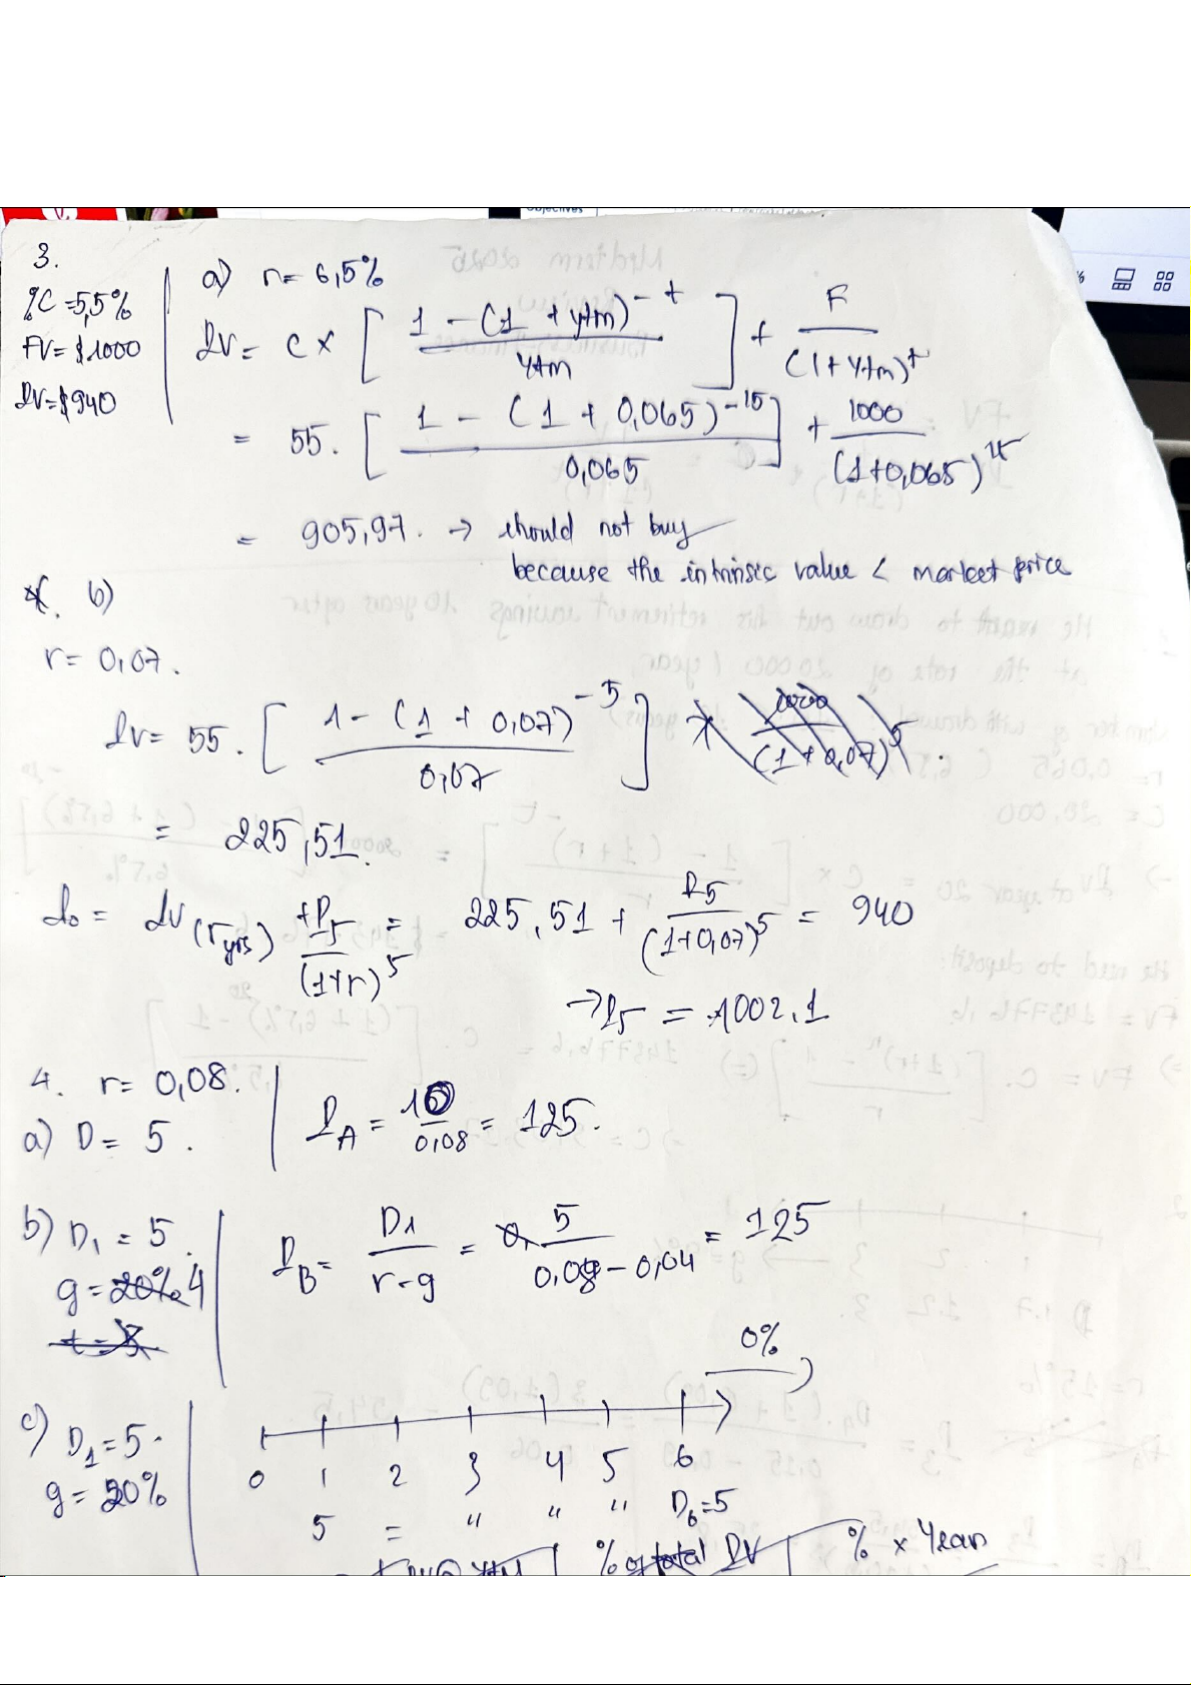 3.
%C = 5,5%
FV = $1000
PV = $940
a) r = 6,5%
PV = C × [ (1 - (1 + ytm)^-t) / ytm ] + F / (1 + ytm)^t
= 55. [ (1 - (1 + 0,065)^-15) / 0,065 ] + 1000 / (1+0,065)^15
= 905,97. → should not buy
because the intrinsic value < market price
b)
r = 0,07.
PV = 55. [ (1 - (1 + 0,07)^-5) / 0,07 ]
= 225,51.
P0 = PV (5 yrs) + P5 / (1+r)^5 = 225,51 + P5 / (1+0,07)^5 = 940
→ P5 = 1002.1
4. r = 0,08.
a) D = 5.
PA = 10 / 0,08 = 125.
b) D1 = 5.
g = 4
PB = D1 / r-g = 5 / 0,08 - 0,04 = 125
c) D1 = 5.
g = 20%
0%
0 1 2 3 4 5 6
5 = " " " D6 = 5
% of total PV | % × Year